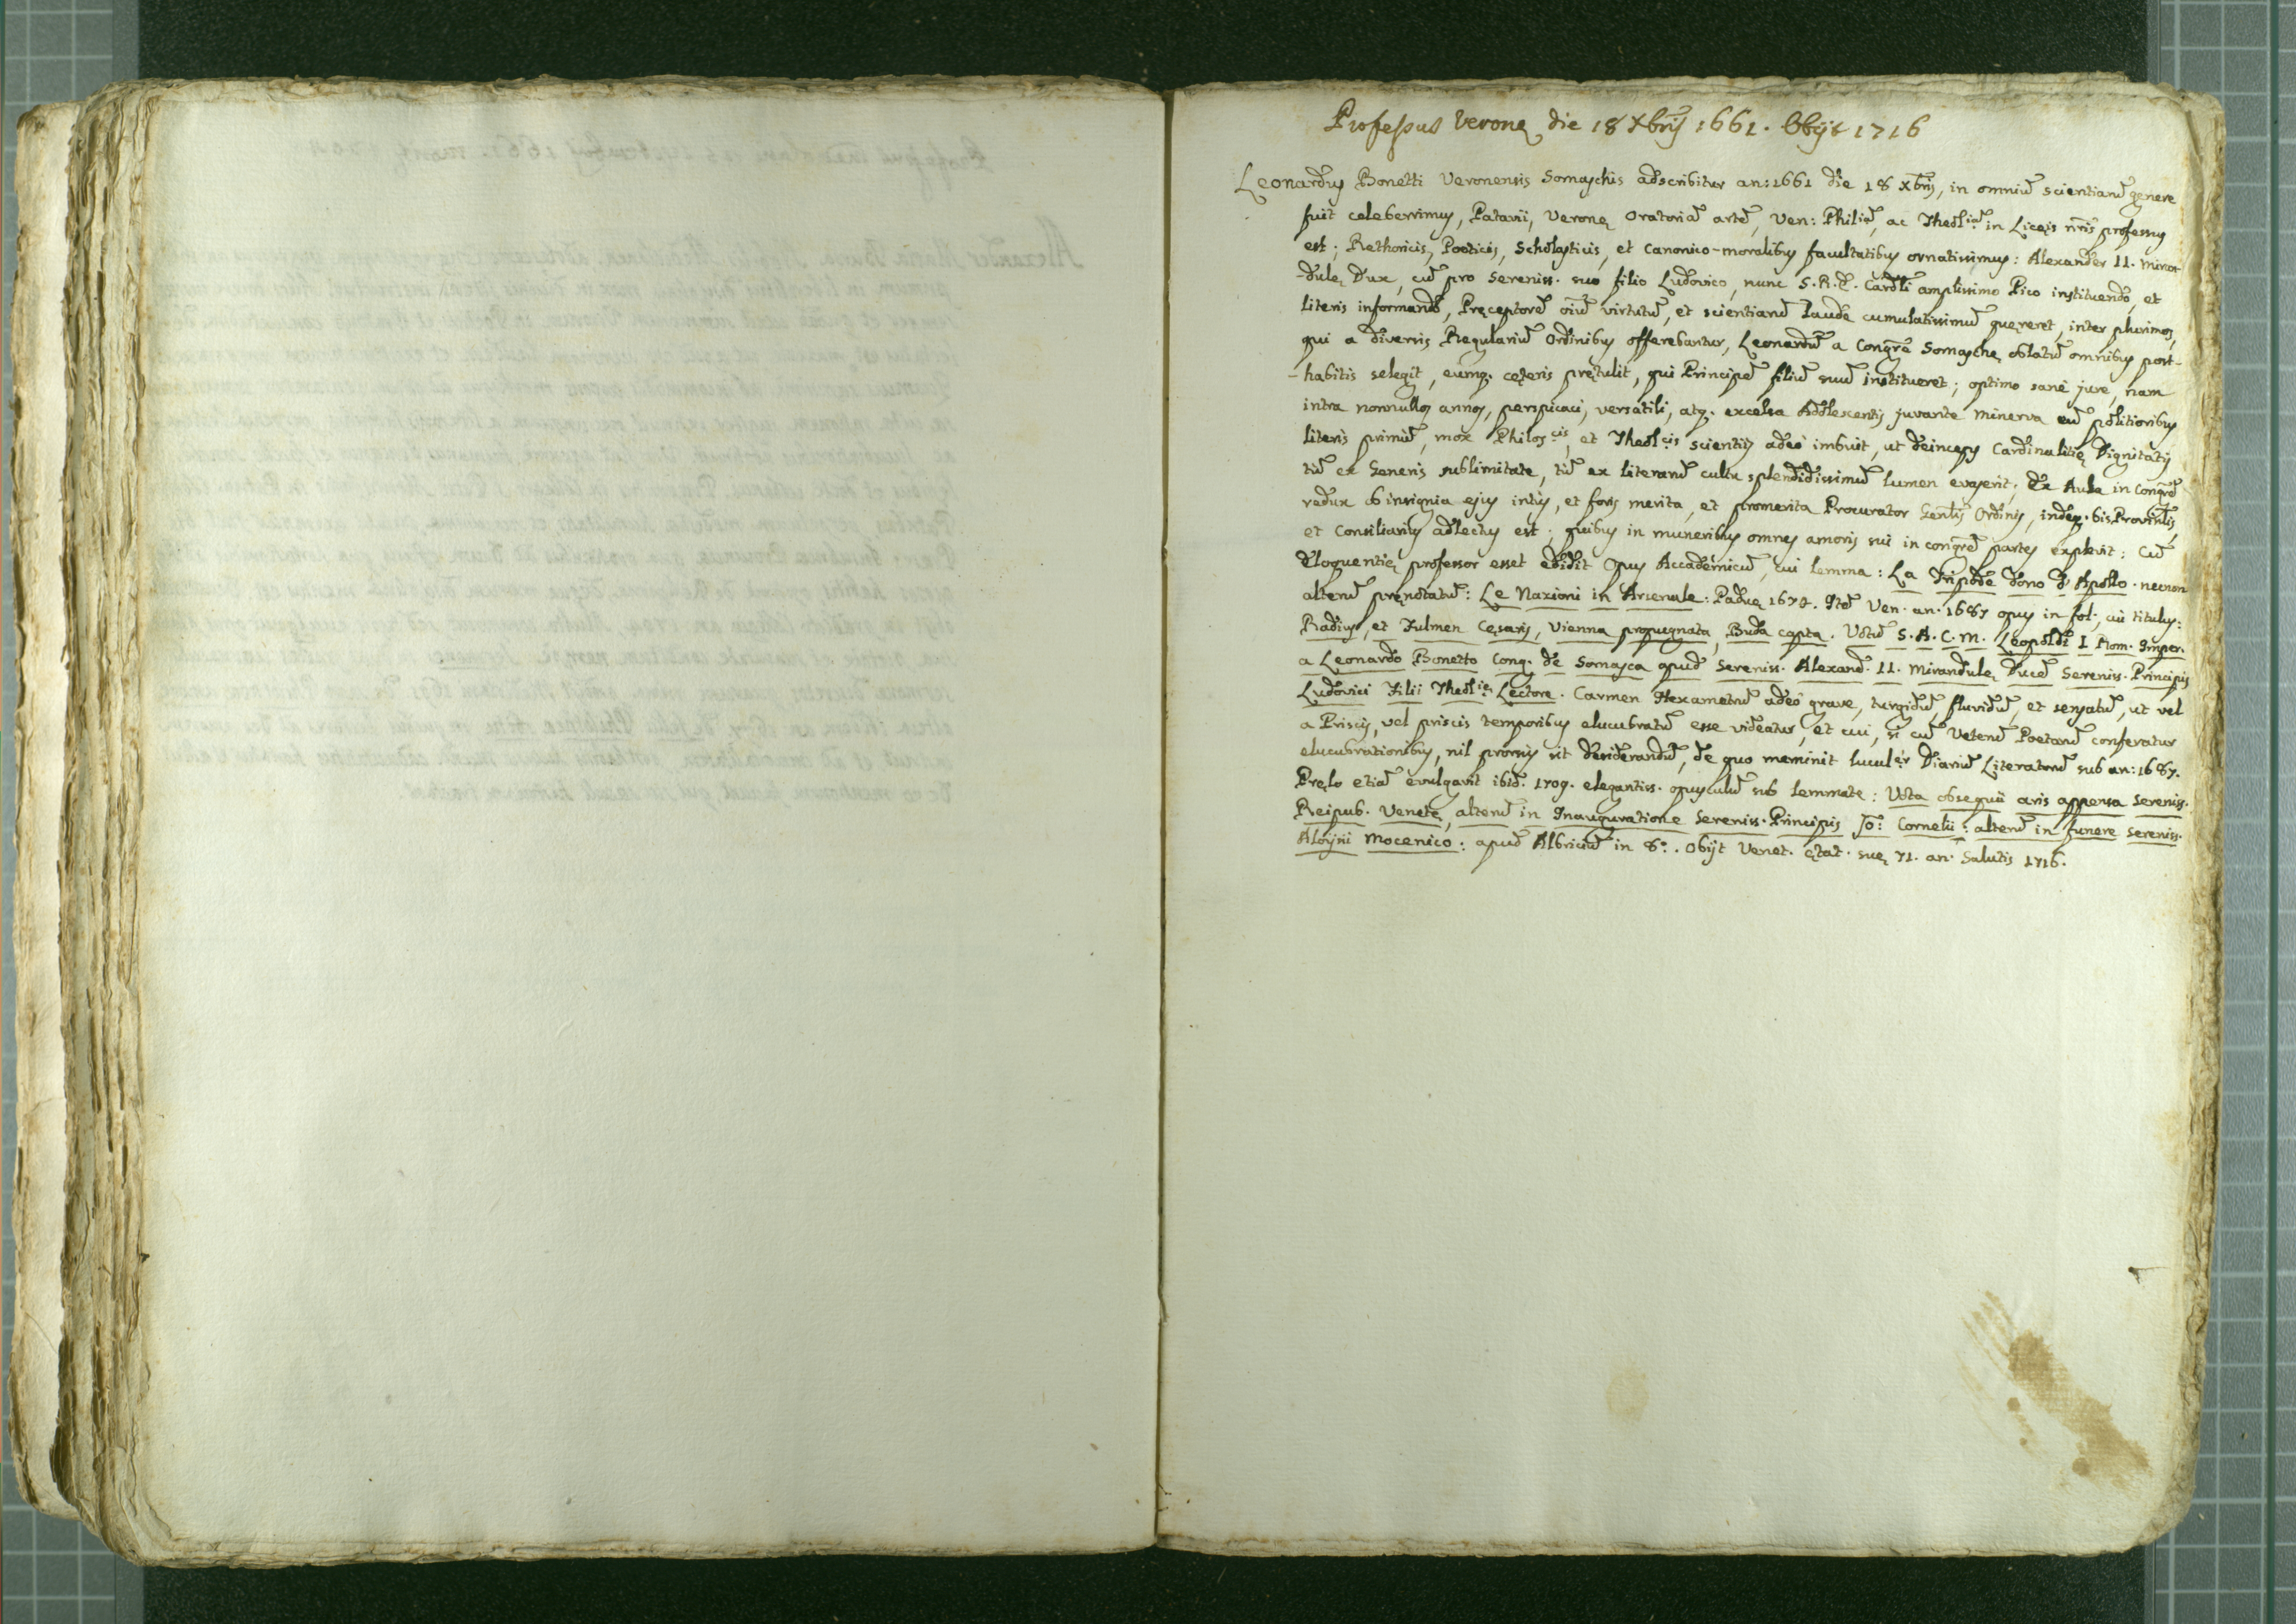 Professus Veronę die 18 Xbrij 1661. Obijt 1716
Leonardus Bonetti Veronensis Somaschis adscribitur an: 1661 die 18 Xbris, in omniū scientiarū genere
fuit celeberrimus, Patavii, Veronę Oratoriā artē, Ven: Philiā, ac Theolīam in Licęis nr̄is professus
est; Rethoricis, Poeticis, Scholasticis, et Canonico-moralibus facultatibus ornatissimus: Alexander II. Miran-
-dulę Dux, cū pro Sereniss. suo filio Ludovico, nunc S.R.E. Cardli amplissimo Pico instituendo, et
literis informando, Pręceptorē oīum virtutū, et scientiarū laude cumulatissimū quęreret, inter plurimos,
qui a diversis Regulariū Ordinibus offerebantur, Leonardū a Congrē Somaschę oblatū omnibus post-
-habitis selegit, eumq. cęteris prętulit, qui Principē filiū suū institueret; optimo sanè jure, nam
intra nonnullos annos, perspicaci, versatili, atq. excelsa Adolescentis juvante Minerva eū politioribus
literis primū, mox Philoscis, et Theolcis scientijs adeò imbuit, ut deinceps Cardinalitię Dignitatis
tū ex Generis sublimitate, tū ex literarū cultu splendidissimū lumen evaserit; Ex Aula in Congrē
redux ob insignia ejus intus, et foris merita, et promerita Procurator Genlis Ordinis, indeq. bis Provinlis,
et Consiliarius adlectus est; quibus in muneribus omnes amoris sui in congrē partes explevit: Cū
Eloquentię professor esset edidit Opus Accademicū, cui lemma: La Tripode dono d'Apollo. necnon
alterū pręnotatū: Le Nazioni in Arsenale: Paduę 1674. Itē Ven. an. 1687 opus in fol. cui titulus:
Radius, et Fulmen Cęsaris, Vienna propugnata, Buda capta. Votū S.A.C.M. Leopoldi I Rom. Imper.
a Leonardo Bonetto Cong. de Somasca apud Sereniss. Alexand. II. Mirandulę Ducē Sereniss. Principis
Ludovici Filii Theolię Lectore. Carmen Hexametrū adeò grave, turgidū, fluvidū, et sensatū, ut vel
a Priscis, vel priscis temporibus elucubratū esse videatur, et cui, si cū Veterū Poetarū conferatur
elucubrationibus, nil prorsus sit desiderandū, de quo meminit luculer Diariū Literatorū sub an: 1687.
Pręlo etiā evulgavit ibid. 1709. elegantiss. opusculū sub lemmate: Vota obsequii aris appensa Sereniss.
Reipub. Venetę, alterū in Inauguratione Sereniss. Principis Jo: Cornelii: alterū in funere Sereniss.
Aloysii Mocenico: apud Albriciū in 8°. Obijt Venet. ętat. suę 71. an. Salutis 1716.